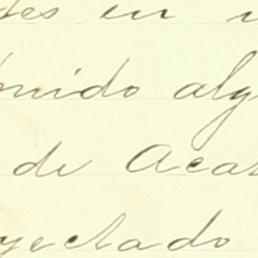 des en
enido alg
de Acas
yectado